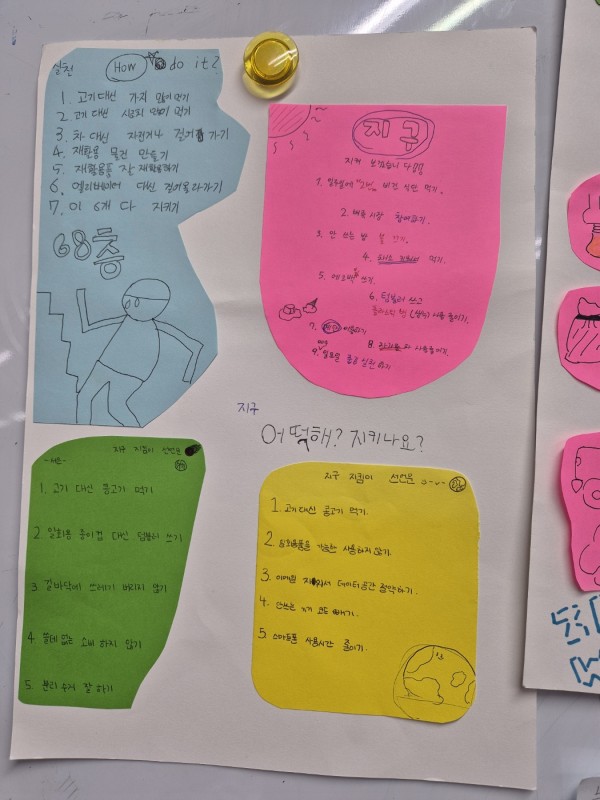 실천 How do it?
1. 고기 대신 가지 많이 먹기
2. 고기 대신 시금치 많이 먹기
3. 차 대신 자전거나 걸어 가기
4. 재활용 물건 만들기
5. 재활용품 잘 재활용하기
6. 엘리베이터 대신 걸어올라가기
7. 이 6개 다 지키기
68층
지구
지켜 보겠습니다
1. 일요일에 비건 식단 먹기.
2. 벼룩시장 참여하기.
3. 안 쓰는 방 불 끄기.
4. 먹기.
5. 에코백 쓰기.
6. 텀블러 쓰고
플라스틱 컵 사용 줄이기.
7.
8. 사용 줄이기.
9. 일요일
지구
어떡해? 지키나요?
지구 지킴이 선언문
-서른-
1. 고기 대신 콩고기 먹기
2. 일회용 종이컵 대신 텀블러 쓰기
3. 길바닥에 쓰레기 버리지 않기
4. 쓸데없는 소비 하지 않기
5. 분리수거 잘 하기
지구 지킴이 선언문
1. 고기 대신 콩고기 먹기.
2. 일회용품을 가능한 사용하지 않기.
3. 이메일 지워서 데이터 공간 절약하기.
4. 안쓰는 기기 코드 빼기.
5. 스마트폰 사용시간 줄이기.